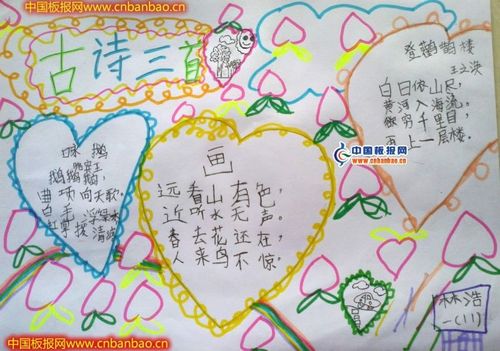 中国板报网www.cnbanbao.cn
古诗三首
咏鹅
鹅鹅鹅,
曲项向天歌。
白毛浮绿水
红掌拨清波
画
远看山有色,
近听水无声。
春去花还在,
人来鸟不惊。
登鹳 楼
王之涣
白日依山尽,
黄河入海流。
欲穷千里目,
更上一层楼。
中国板报网
www.cnbanbao.cn
林浩
一(11)
中国板报网www.cnbanbao.cn